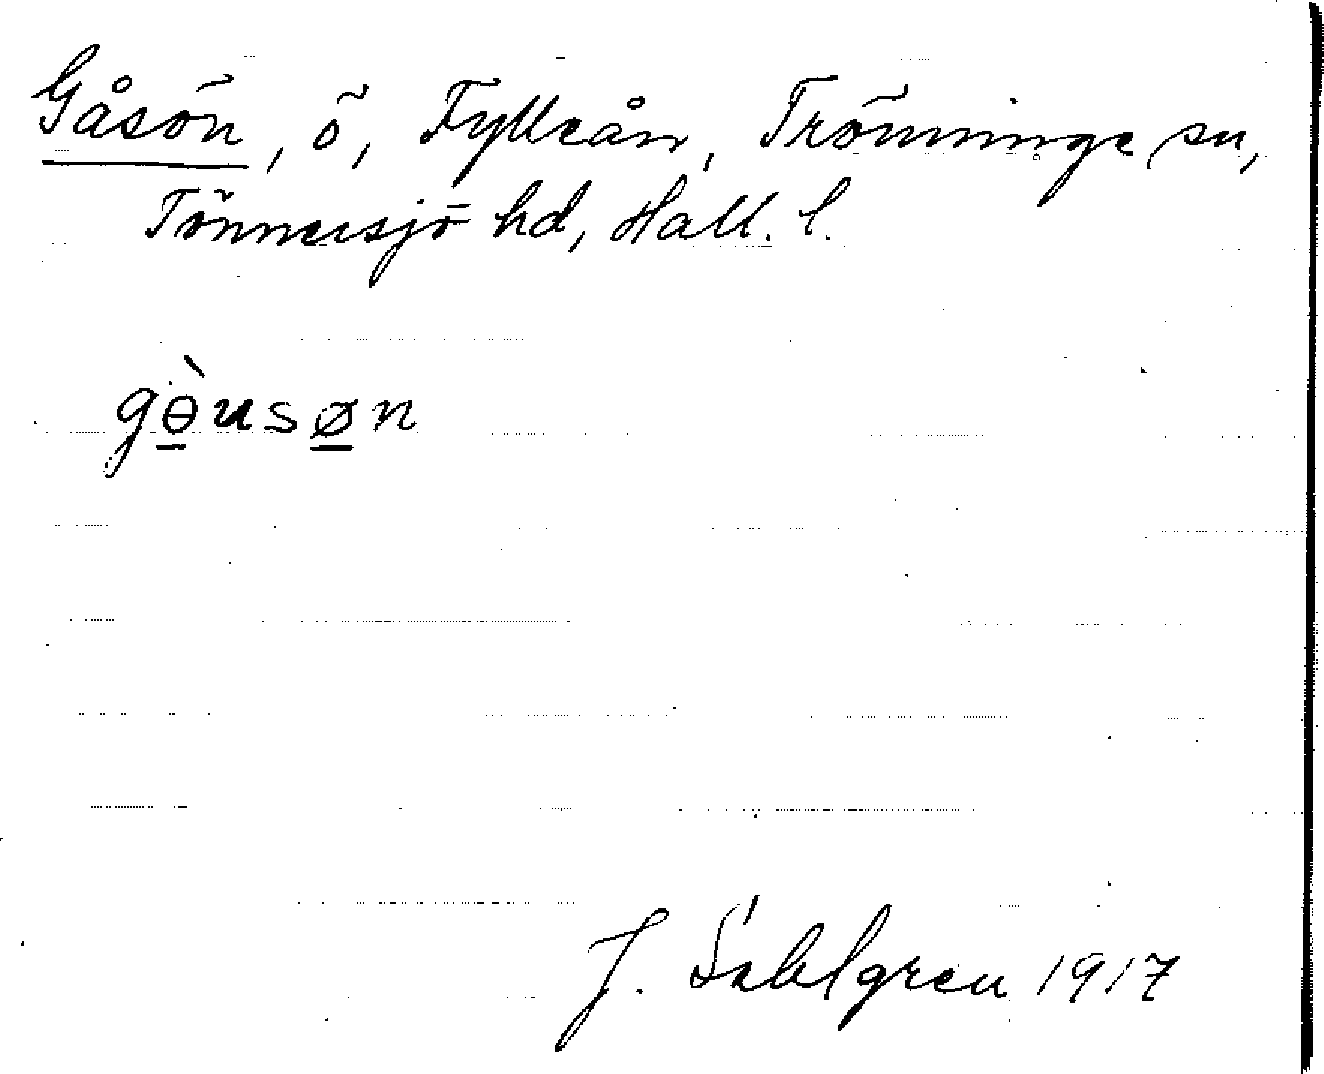 Gåsön, ö, Fylleån, Trönninge sn,
Tönnersjö hd, Hall. l.
gɵ̀usøn
J. Sahlgren 1917